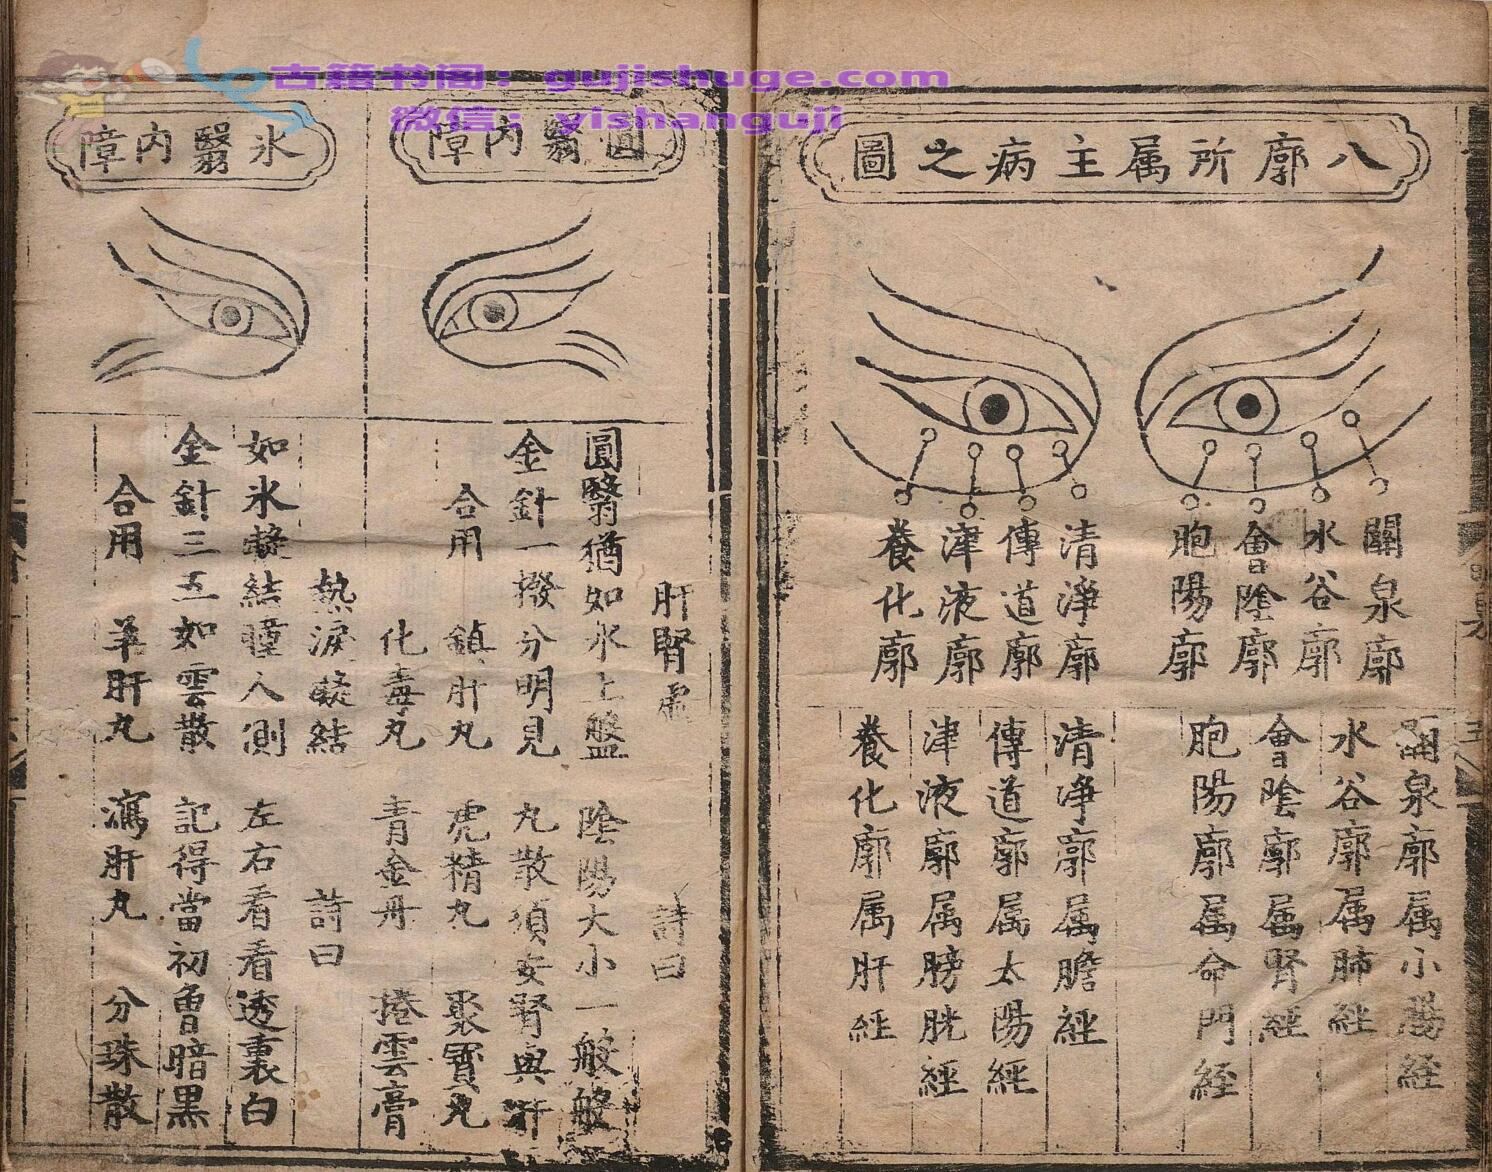 古籍书阁：gujishuge.com
微信：yishanguji
八廓所属主病之圖
關泉廓
水谷廓
會陰廓
胞陽廓
清淨廓
傳道廓
津液廓
養化廓
關泉廓属小腸経
水谷廓属肺経
會陰廓属腎経
胞陽廓属命門経
清净廓属膽經
傳道廓属太陽經
津液廓属膀胱經
養化廓属肝經
圓翳内障
肝腎虛 詩曰
圓翳猶如水上盤 陰陽大小一般般
金針一撥分明見 丸散須安腎與肝
合用 鎮肝丸 虎精丸 聚寶丸
化毒丸 青金丹 捲雲膏
氷翳内障
熱淚凝結 詩曰
如氷凝結瞳人側 左右看看透裏白
金針三五如雲散 記得當初曾暗黒
合用 羊肝丸 瀉肝丸 分珠散